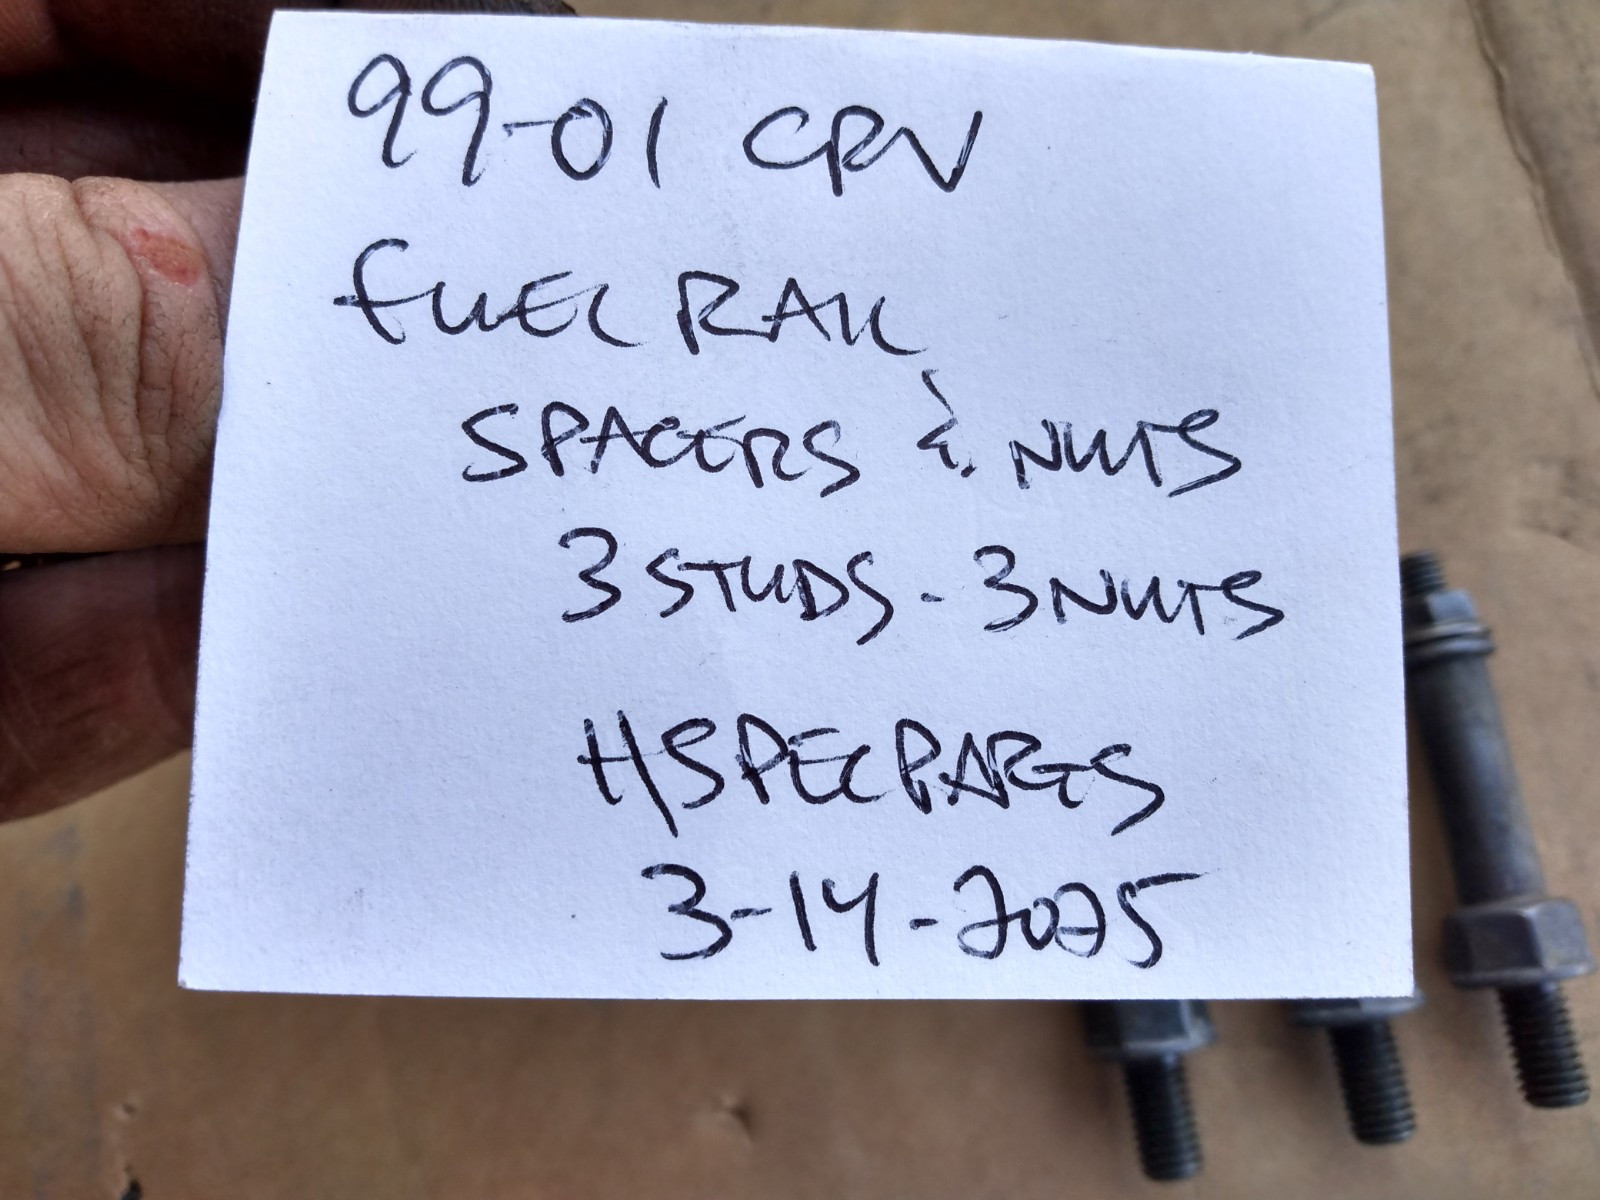 99-01 CRV
FUEL RAIL
SPACERS & NUTS
3 STUDS - 3 NUTS
HSPECPARTS
3-14-2025